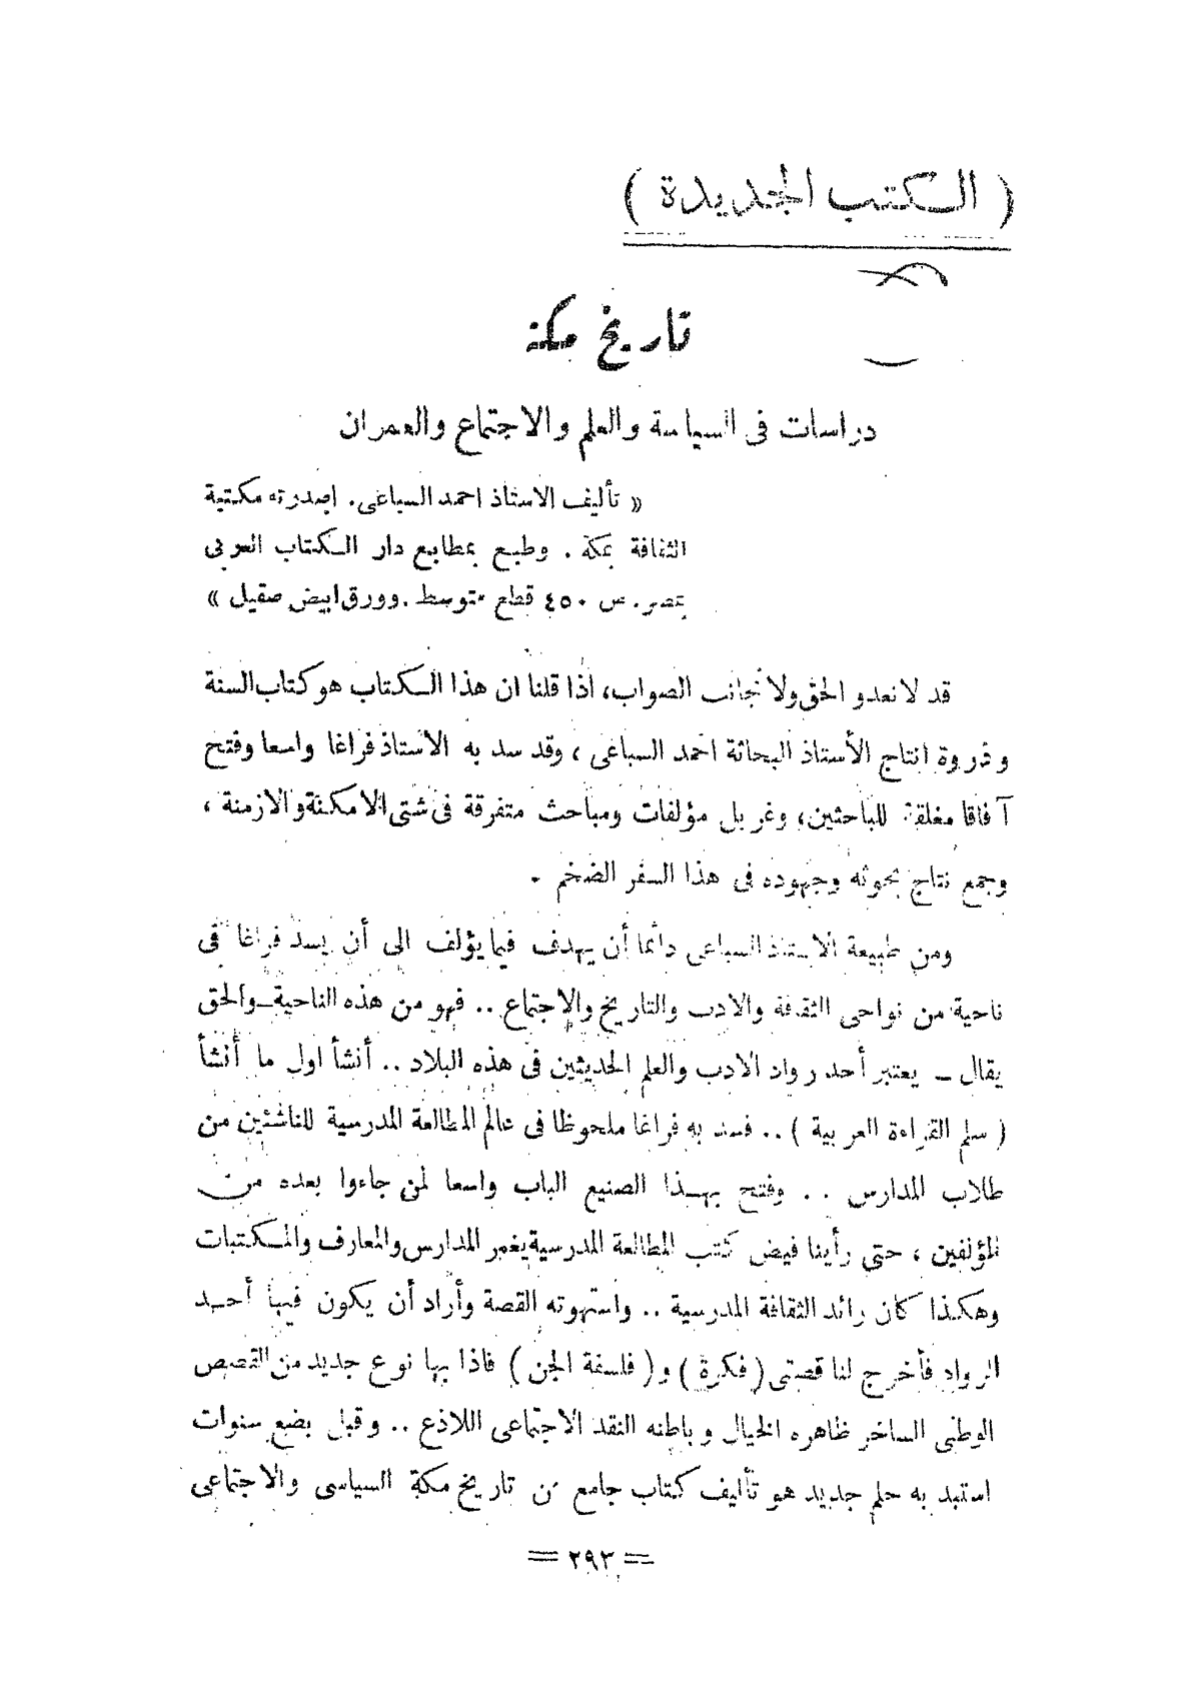 ( الكتب الجديدة )
تاريخ مكة
دراسات فى السياسة والعلم والاجتماع والعمران
« تأليف الاستاذ احمد السباعى. اصدرته مكتبة
الثقافة بمكة . وطبع بمطابع دار الكتاب العربى
بمصر. ص ٤٥٠ قطع متوسط .وورق ابيض صقيل »
قد لا نعدو الحق ولا نجانب الصواب، اذا قلنا ان هذا الكتاب هو كتاب السنة
وذروة انتاج الأستاذ البحاثة احمد السباعى ، وقد سد به الاستاذ فراغا واسعا وفتح
آفاقا مغلقة للباحثين، وغربل مؤلفات ومباحث متفرقة فى شتى الامكنة والازمنة ،
وجمع نتاج بحوثه وجهوده فى هذا السفر الضخم .
ومن طبيعة الاستاذ السباعى دائما أن يهدف فيما يؤلف الى أن يسد فراغا فى
ناحية من نواحى الثقافة والادب والتاريخ والاجتماع .. فهو من هذه الناحية ــ والحق
يقال ــ يعتبر أحد رواد الادب والعلم الحديثين فى هذه البلاد .. أنشأ اول ما أنشأ
( سلم القراءة العربية ) .. فسد به فراغا ملحوظا فى عالم المطالعة المدرسية للناشئين من
طلاب المدارس .. وفتح بهذا الصنيع الباب واسعا لمن جاءوا بعده من
المؤلفين ، حتى رأينا فيض كتب المطالعة المدرسية يغمر المدارس والمعارف والمكتبات
وهكذا كان رائد الثقافة المدرسية .. واستهوته القصة وأراد أن يكون فيها أحد
الرواد فأخرج لنا قصتى ( فكرة ) و ( فلسفة الجن ) فاذا بها نوع جديد من القصص
الوطنى الساخر ظاهره الخيال وباطنه النقد الاجتماعى اللاذع .. وقبل بضع سنوات
استبد به حلم جديد هو تأليف كتاب جامع عن تاريخ مكة السياسى والاجتماعى
= ٢٩٣ =